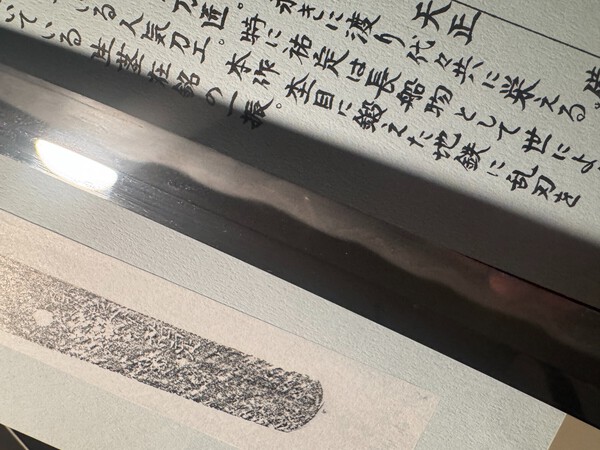 天正
永きに渡り代々共に栄える。
刀匠。特に祐定は長船物として世によ
いる人気刀工。本作杢目に鍛えた地鉄に乱刃さ
ている生茎在銘の一振。